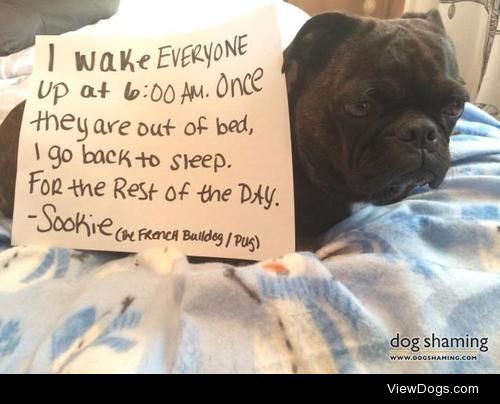 I wake EVERYONE
up at 6:00 AM. Once
they are out of bed,
I go back to sleep.
FOR the Rest of the DAY.
-Sookie (the French Bulldog / Pug)
dog shaming
WWW.DOGSHAMING.COM
ViewDogs.com